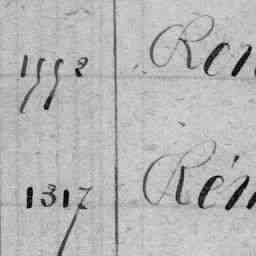 1552 Ren
1317 Rém